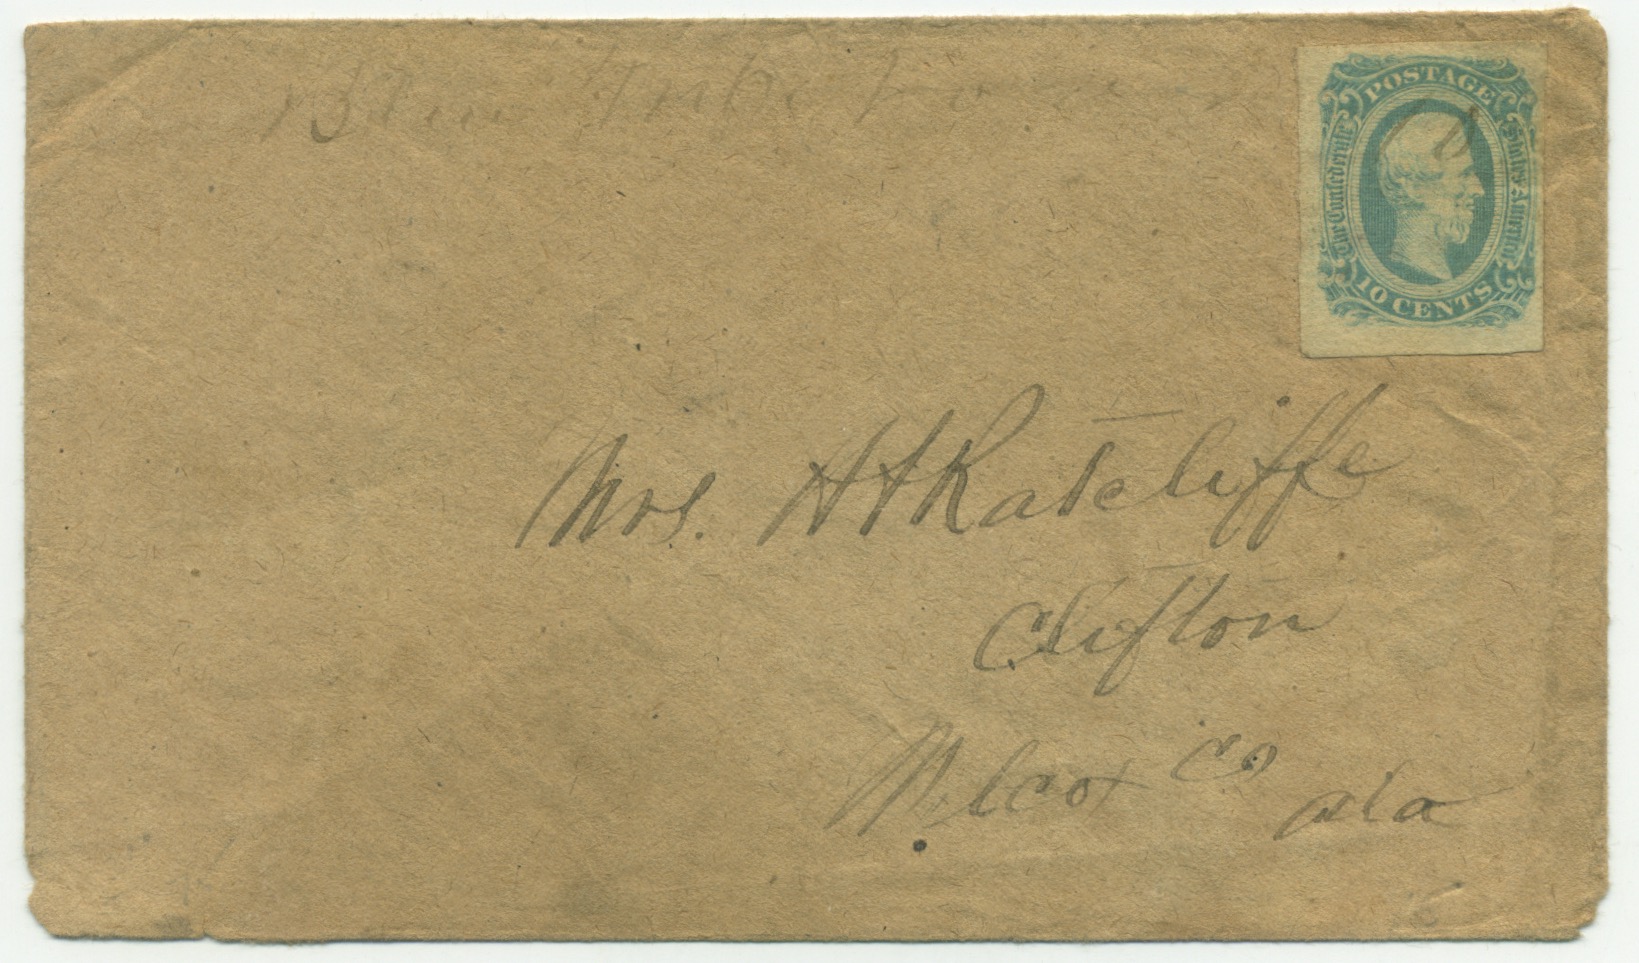 POSTAGE
The Confederate
States America
10 CENTS
Mrs. H A Ratcliffe
Clifton
Wilcox Co
Ala